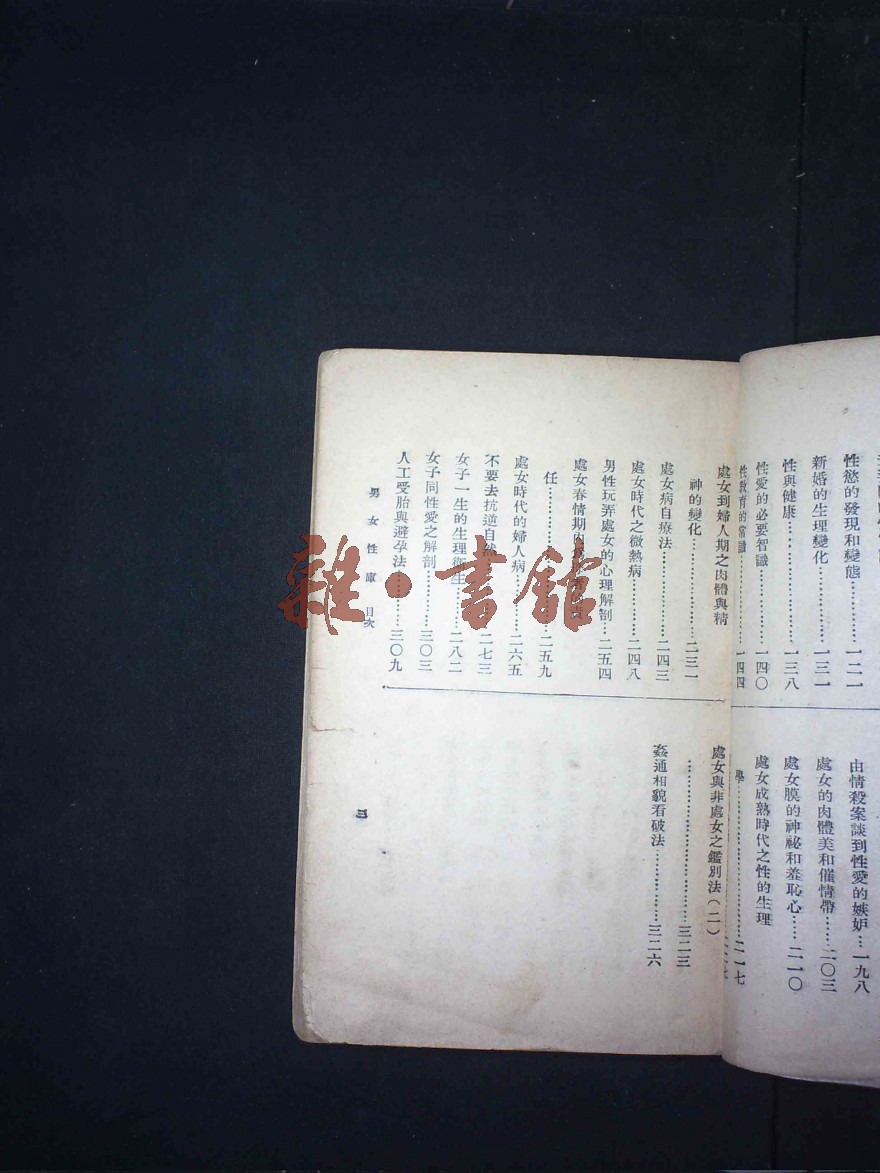 性慾的發現和變態……一二一
新婚的生理變化……一三一
性與健康……一三八
性愛的必要智識……一四〇
性教育的常識……一四四
由情殺案談到性愛的嫉妒…一九八
處女的肉體美和催情帶……二〇三
處女膜的神祕和羞恥心……二一〇
處女成熟時代之性的生理
學……二一七
處女到婦人期之肉體與精
神的變化……二三一
處女病自療法……二四三
處女時代之微熱病……二四八
男性玩弄處女的心理解剖……二五四
處女春情期
責
任……二五九
處女時代的婦人病……二六五
不要去抗逆自然……二七三
女子一生的生理衛生……二八二
女子同性愛之解剖……三〇三
人工受胎與避孕法……三〇九
處女與非處女之鑑別法(二)
……三二三
姦通相貌看破法……三二六
男女性庫 目次
三
雜·書館